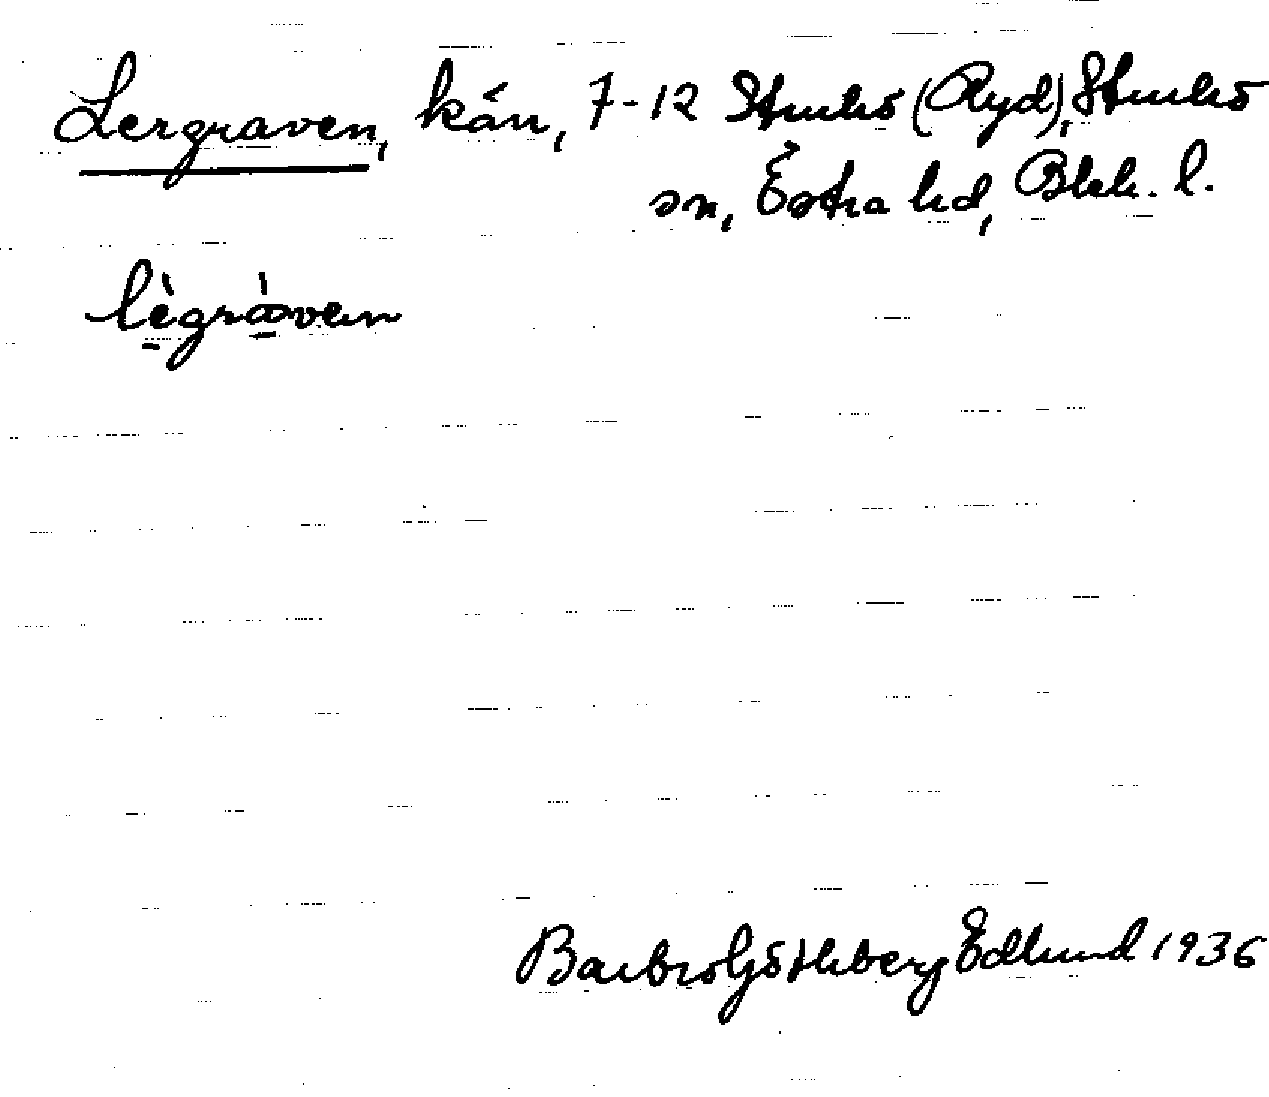 Lergraven, kärr, 7-12 Sturkö (Ryd), Sturkö
sn, Östra hd, Blek. l.
lègràven
Barbro Götlberg Edlund 1936